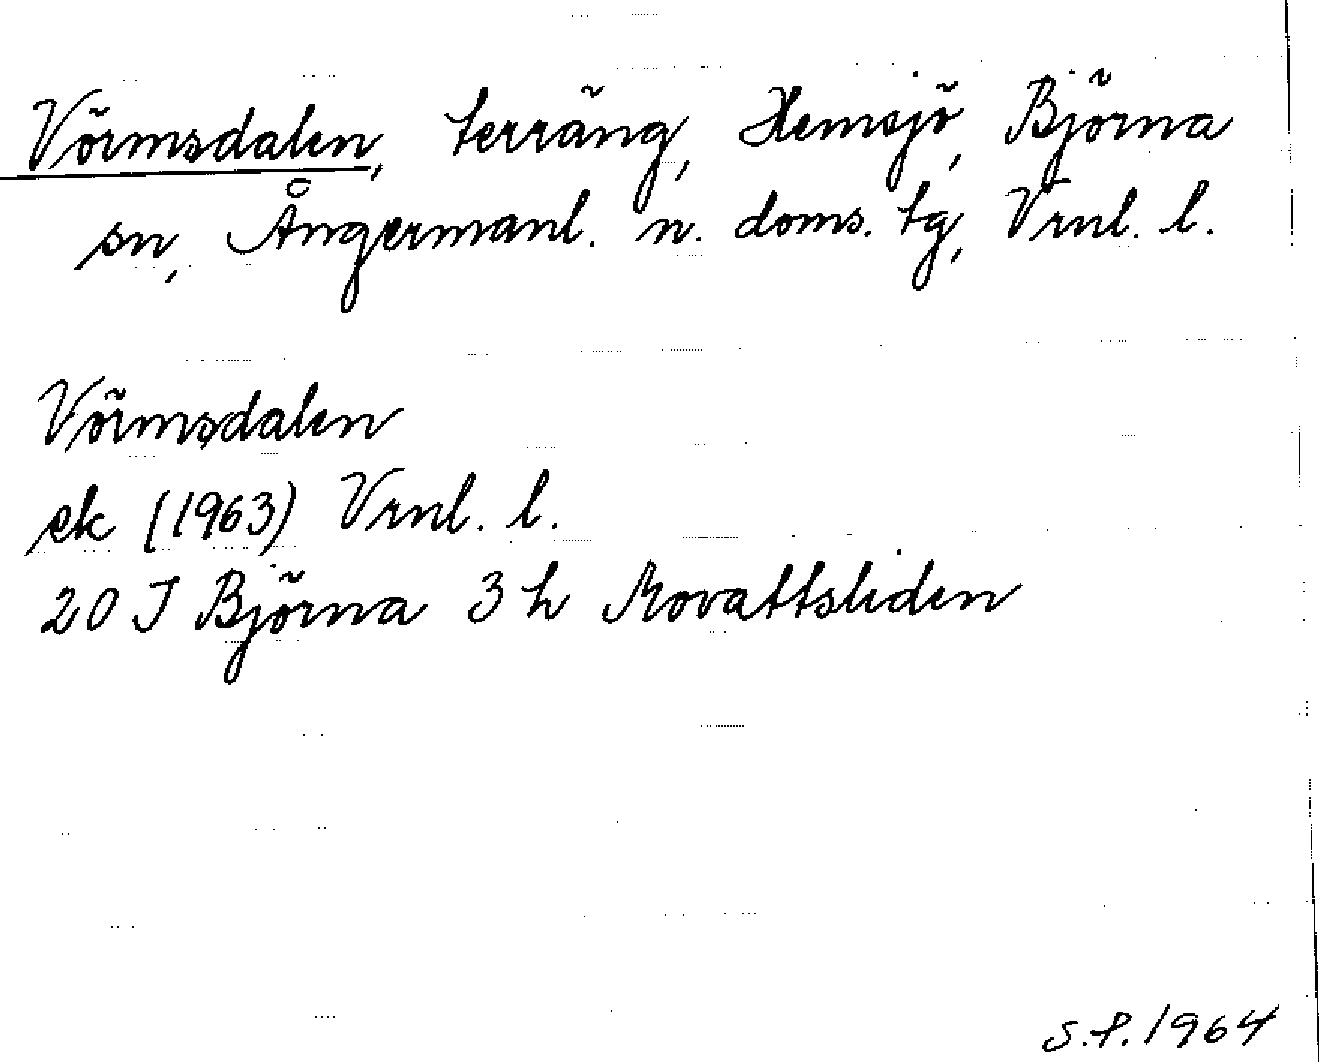 Vörmsdalen, terräng, Hemsjö, Björna
sn, Ångermanl. n. doms. tg, Vrnl. l.
Vörmsdalen
ek (1963) Vrnl. l.
20 J Björna 3 h Movattsliden
S.P. 1964